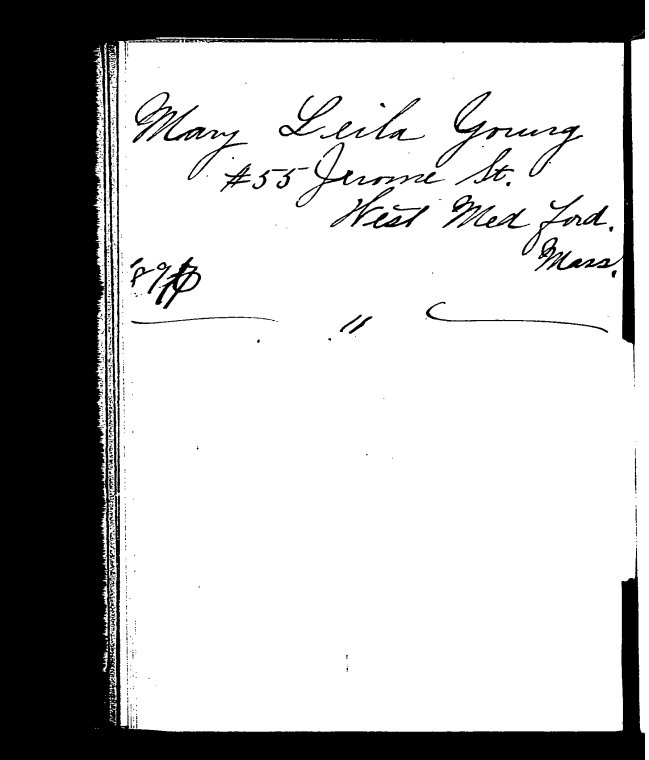 Mary Leila Young
#55 Jerome St.
West Med ford.
Mass.
"